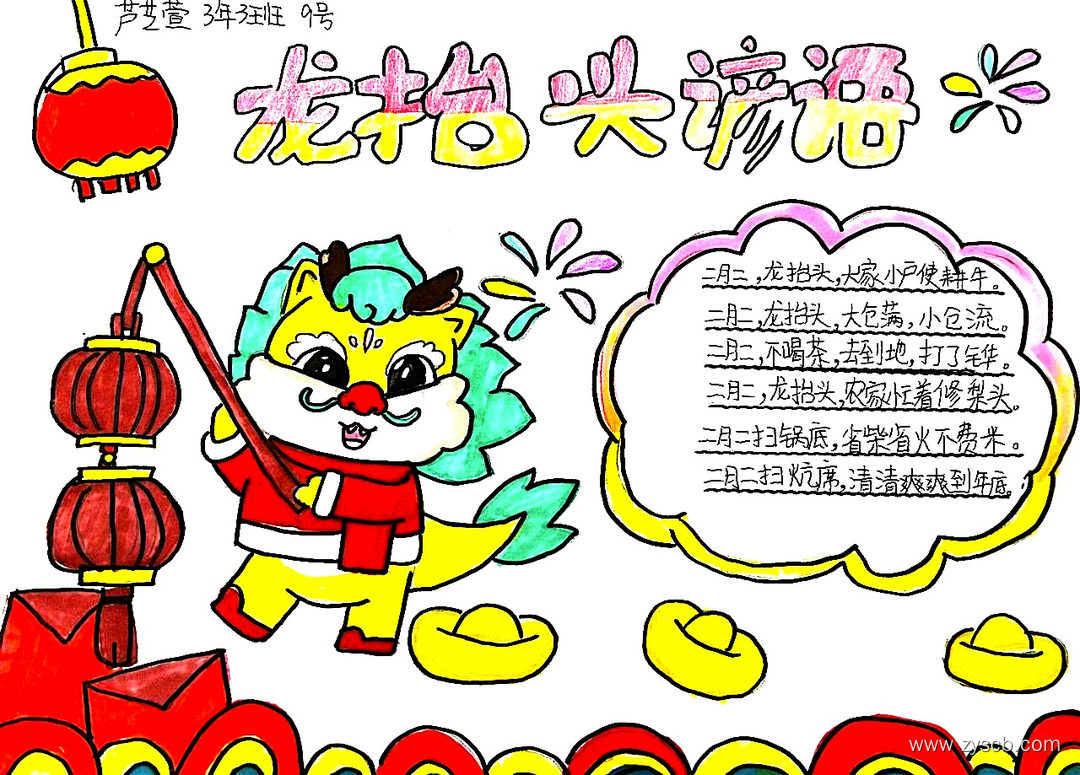 芦芝萱 3年3班 9号
龙抬头谚语
二月二,龙抬头,大家小户使耕牛。
二月二,龙抬头,大仓满,小仓流。
二月二,不喝茶,去到地,打了华。
二月二,龙抬头,农家忙着修梨头。
二月二扫锅底,省柴省火不费米。
二月二扫炕席,清清爽爽到年底。
www.zyssb.com